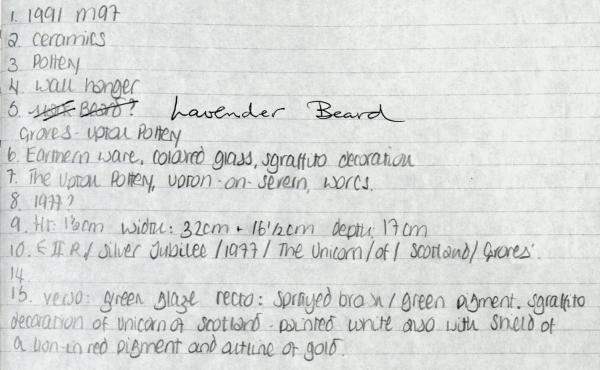 1. 1991 M97
2. ceramics
3. Pottery
4. wall hanger
5. Beard? Lavender Beard
Groves - Upton Pottery
6. Earthern ware, colared glass, sgraffito decoration
7. The Upton Pottery, Upton-on-Severn, Worcs.
8. 1977?
9. Ht: 1½cm width: 32cm + 16½cm depth: 17cm
10. E II R / Silver Jubilee / 1977 / The Unicorn / of / Scotland / Groves'
14.
15. verso: green glaze recto: sprayed brown / green pigment, sgraffito
decoration of unicorn of scotland - painted white also with shield of
a lion in red pigment and outline of gold.